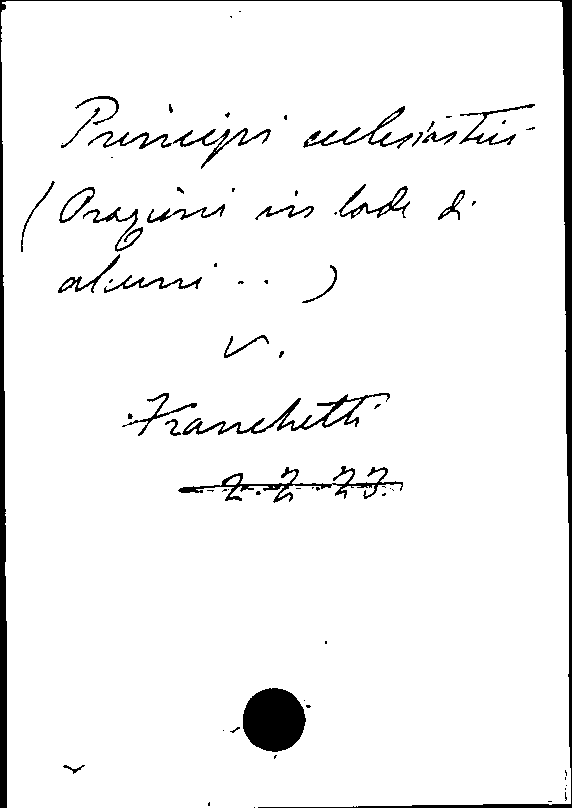 Principi ecclesiastici
(Orazioni in lode di
alcuni .. )
v.
Franchetti
2.2.23.